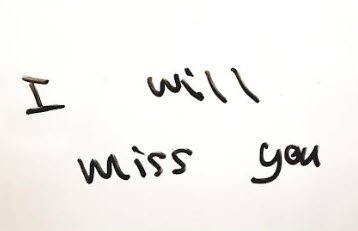 I will
miss you